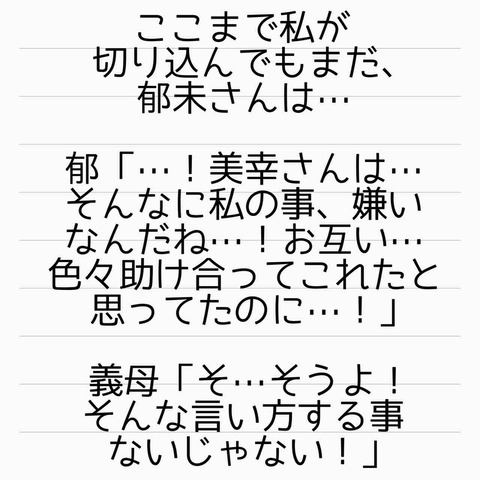 ここまで私が
切り込んでもまだ、
郁未さんは…
郁「…！美幸さんは…
そんなに私の事、嫌い
なんだね…！お互い…
色々助け合ってこれたと
思ってたのに…！」
義母「そ…そうよ！
そんな言い方する事
ないじゃない！」